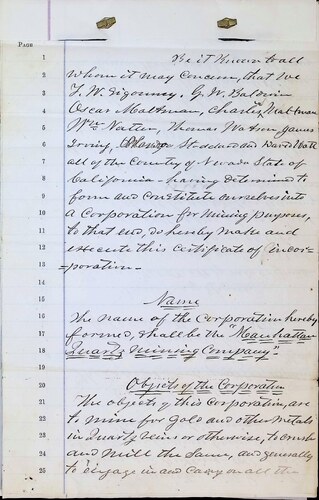 PAGE
1 Be it Known to all
2 whom it may Concern, that We
3 T. W. Sigourney, G. W. Baldwin
4 Oscar Maltman, Charles Maltman
5 Wm Watson, Thomas Watson James
6 Irving, Stoddard and David Watt
7 all of the County of Nevada State of
8 California - having determined to
9 form and Constitute ourselves into
10 a Corporation for Mining purposes,
11 to that end, do hereby make and
12 execute this Certificate of incor-
13 -poration -
14
15 Name
16 The name of the Corporation hereby
17 formed, shall be the "Manhattan
18 Quartz Mining Company" -
19
20 Objects of the Corporation
21 The objects of this Corporation, are
22 to mine for Gold and other Metals
23 in Quartz veins or otherwise, to crush
24 and Mill the Same, and generally
25 to engage in and Carry on all the